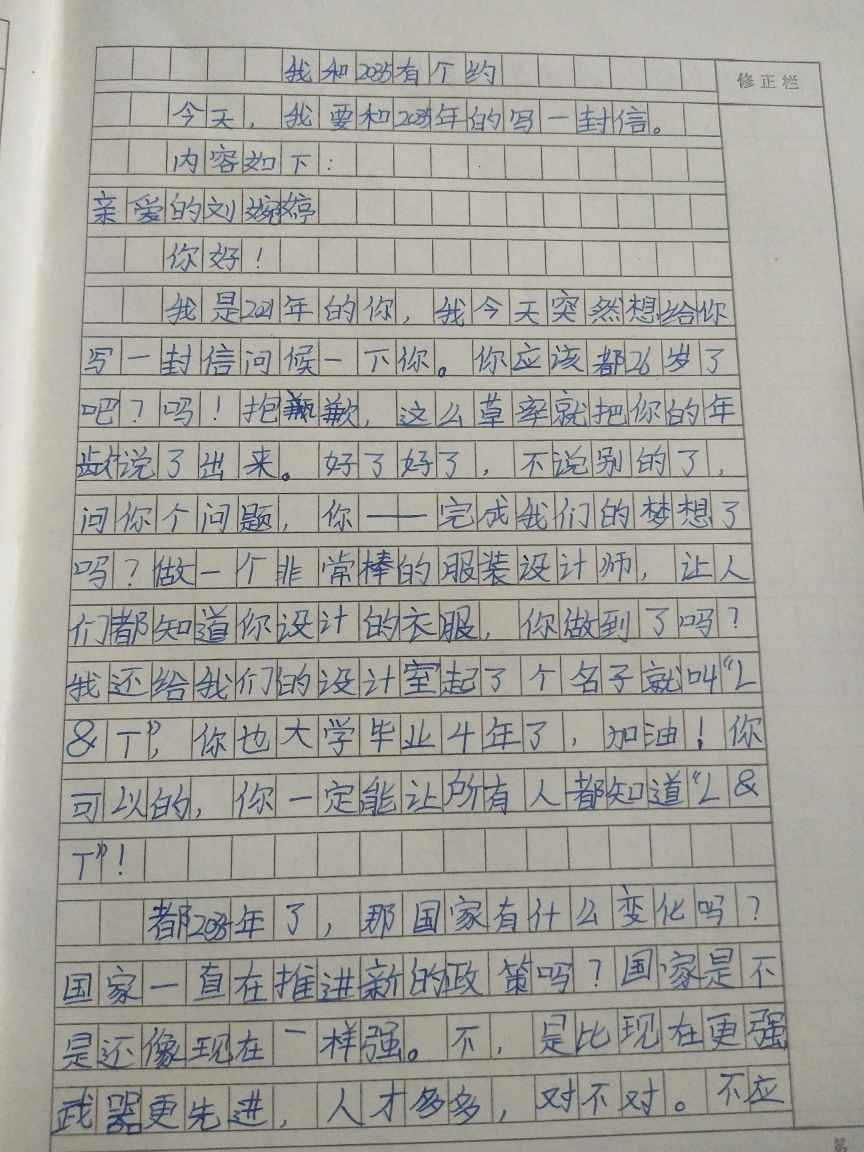 我和2035有个约
修正栏
今天，我要和2035年的写一封信。
内容如下：
亲爱的刘婉婷
你好！
我是2021年的你，我今天突然想给你
写一封信问候一下你。你应该都26岁了
吧？吗！抱歉，这么草率就把你的年
龄说了出来。好了好了，不说别的了，
问你个问题，你——完成我们的梦想了
吗？做一个非常棒的服装设计师，让人
们都知道你设计的衣服，你做到了吗？
我还给我们的设计室起了个名子就叫“L
& T”，你也大学毕业4年了，加油！你
可以的，你一定能让所有人都知道“L &
T”！
都2035年了，那国家有什么变化吗？
国家一直在推进新的政策吗？国家是不
是还像现在一样强。不，是比现在更强
武器更先进，人才多多，对不对。不应
第